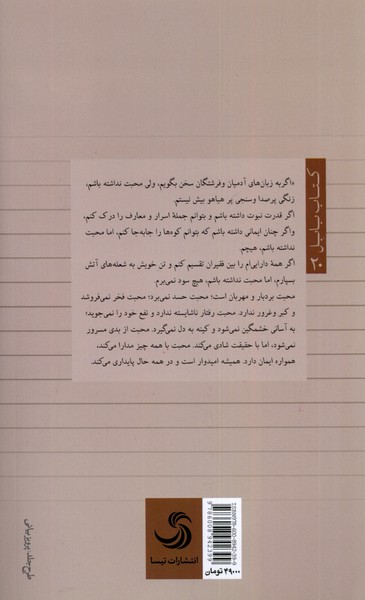 کتاب نیایش ۲
«اگر به زبان‌های آدمیان وفرشتگان سخن بگویم، ولی محبت نداشته باشم،
زنگی پرصدا وسنجی پر هیاهو بیش نیستم.
اگر قدرت نبوت داشته باشم و بتوانم جملهٔ اسرار و معارف را درک کنم،
واگر چنان ایمانی داشته باشم که بتوانم کوه‌ها را جابه‌جا کنم، اما محبت
نداشته باشم، هیچم.
اگر همهٔ دارایی‌ام را بین فقیران تقسیم کنم و تن خویش به شعله‌های آتش
بسپارم، اما محبت نداشته باشم، هیچ سود نمی‌برم.
محبت بردبار و مهربان است؛ محبت حسد نمی‌برد؛ محبت فخر نمی‌فروشد
و کبر وغرور ندارد. محبت رفتار ناشایسته ندارد و نفع خود را نمی‌جوید؛
به آسانی خشمگین نمی‌شود و کینه به دل نمی‌گیرد. محبت از بدی مسرور
نمی‌شود، اما با حقیقت شادی می‌کند. محبت با همه چیز مدارا می‌کند،
همواره ایمان دارد. همیشه امیدوار است و در همه حال پایداری می‌کند.
انتشارات تیسا
9786008942399
۴۹۰۰۰ تومان
طرح جلد: پرویز بیانی